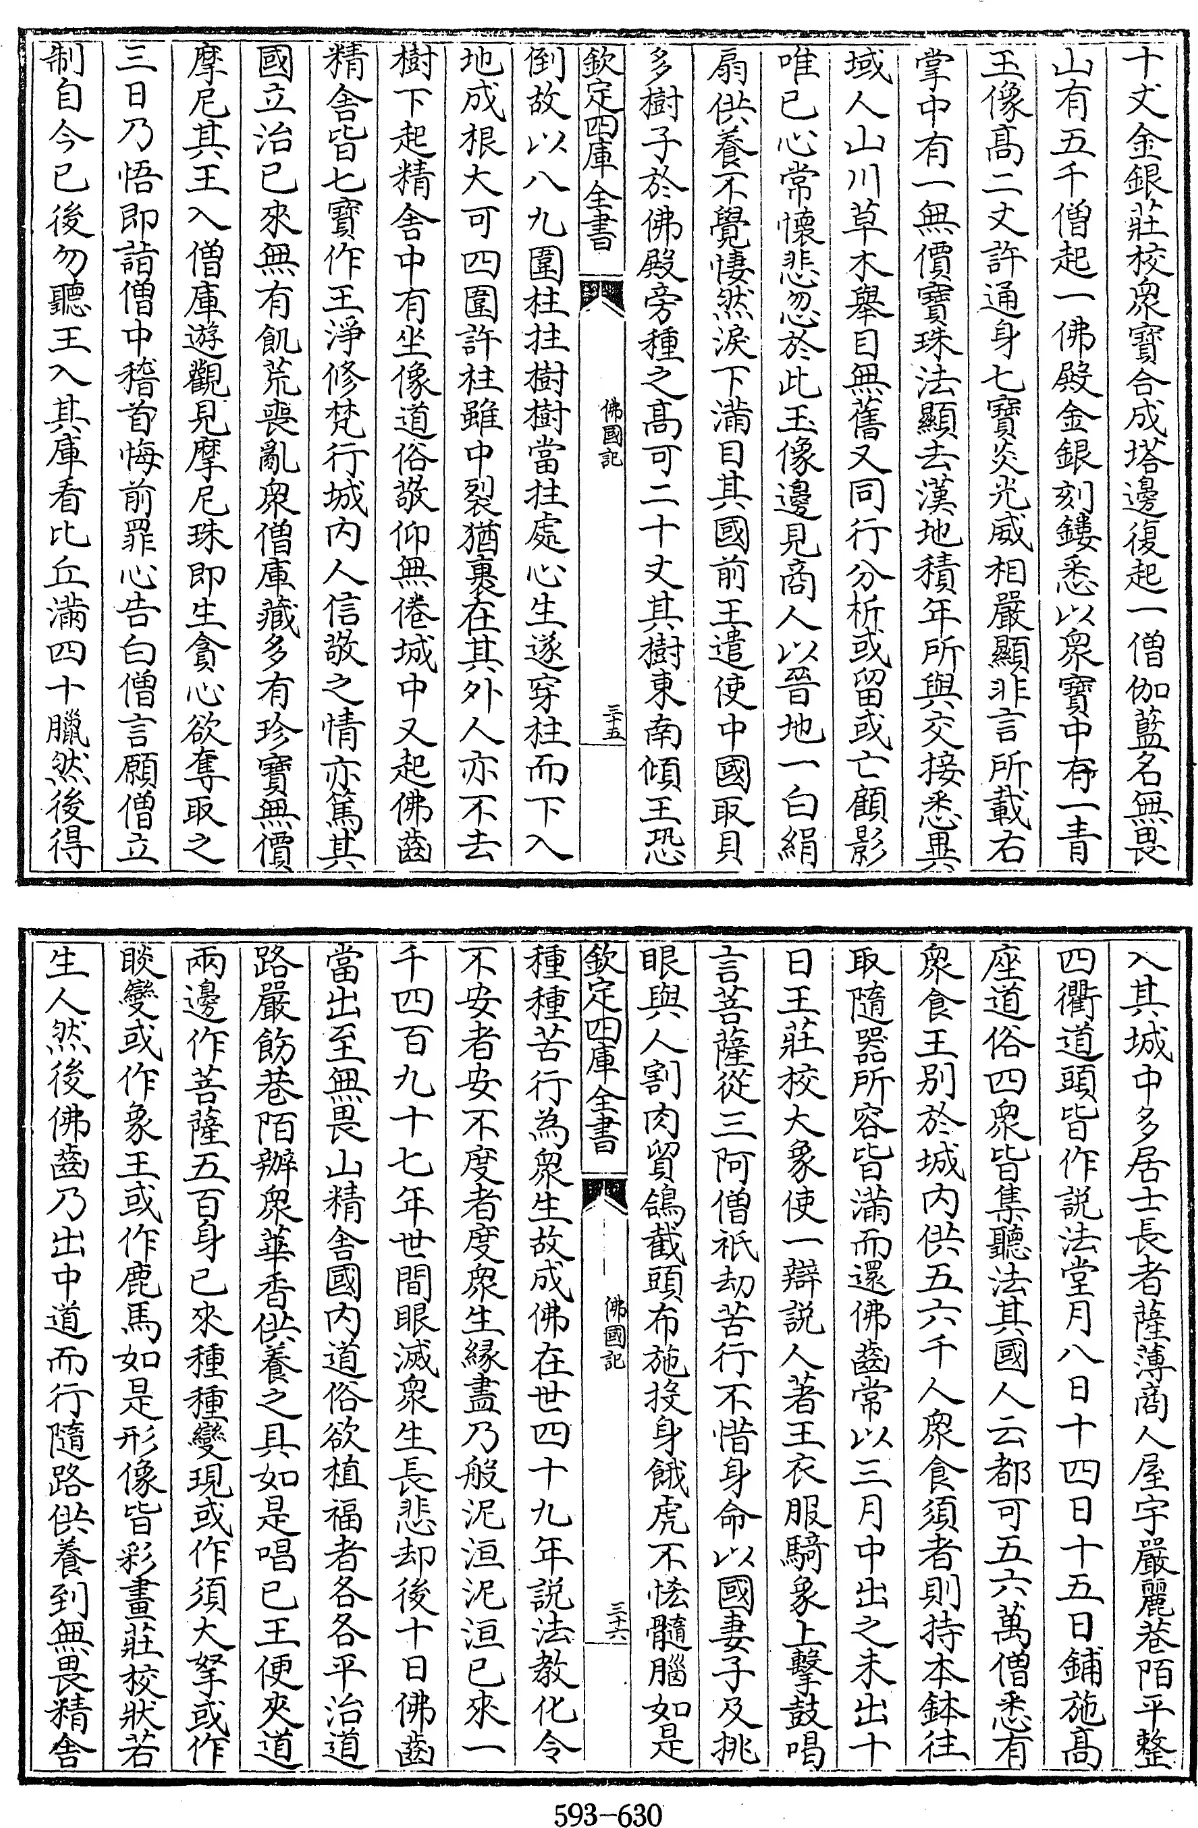 十丈金銀莊校衆寶合成塔邊復起一僧伽藍名無畏
山有五千僧起一佛殿金銀刻鏤悉以衆寶中有一青
玉像髙二丈許通身七寶炎光威相嚴顯非言所載右
掌中有一無價寶珠法顯去漢地積年所與交接悉異
域人山川草木舉目無舊又同行分析或留或亡顧影
唯已心常懷悲忽於此玉像邊見商人以晉地一白絹
扇供養不覺悽然淚下滿目其國前王遣使中國取貝
多樹子於佛殿旁種之髙可二十丈其樹東南傾王恐
欽定四庫全書
佛國記
三十五
倒故以八九圍柱拄樹樹當拄處心生遂穿柱而下入
地成根大可四圍許柱雖中裂猶裹在其外人亦不去
樹下起精舍中有坐像道俗敬仰無倦城中又起佛齒
精舍皆七寶作王淨修梵行城內人信敬之情亦篤其
國立治已來無有飢荒喪亂衆僧庫藏多有珍寶無價
摩尼其王入僧庫遊觀見摩尼珠即生貪心欲奪取之
三日乃悟即詣僧中稽首悔前罪心告白僧言願僧立
制自今已後勿聽王入其庫看比丘滿四十臘然後得
入其城中多居士長者薩薄商人屋宇嚴麗巷陌平整
四衢道頭皆作説法堂月八日十四日十五日鋪施髙
座道俗四衆皆集聽法其國人云都可五六萬僧悉有
衆食王别於城内供五六千人衆食須者則持本鉢往
取隨器所容皆滿而還佛齒常以三月中出之未出十
日王莊校大象使一辯説人著王衣服騎象上擊鼓唱
言菩薩從三阿僧祇劫苦行不惜身命以國妻子及挑
眼與人割肉貿鴿截頭布施投身餓虎不恡髓腦如是
欽定四庫全書
佛國記
三十六
種種苦行為衆生故成佛在世四十九年説法教化令
不安者安不度者度衆生緣盡乃般泥洹泥洹已來一
千四百九十七年世間眼滅衆生長悲却後十日佛齒
當出至無畏山精舍國内道俗欲植福者各各平治道
路嚴飭巷陌辦衆華香供養之具如是唱已王便夾道
兩邊作菩薩五百身已來種種變現或作須大拏或作
睒變或作象王或作鹿馬如是形像皆彩畫莊校狀若
生人然後佛齒乃出中道而行隨路供養到無畏精舍
593-630